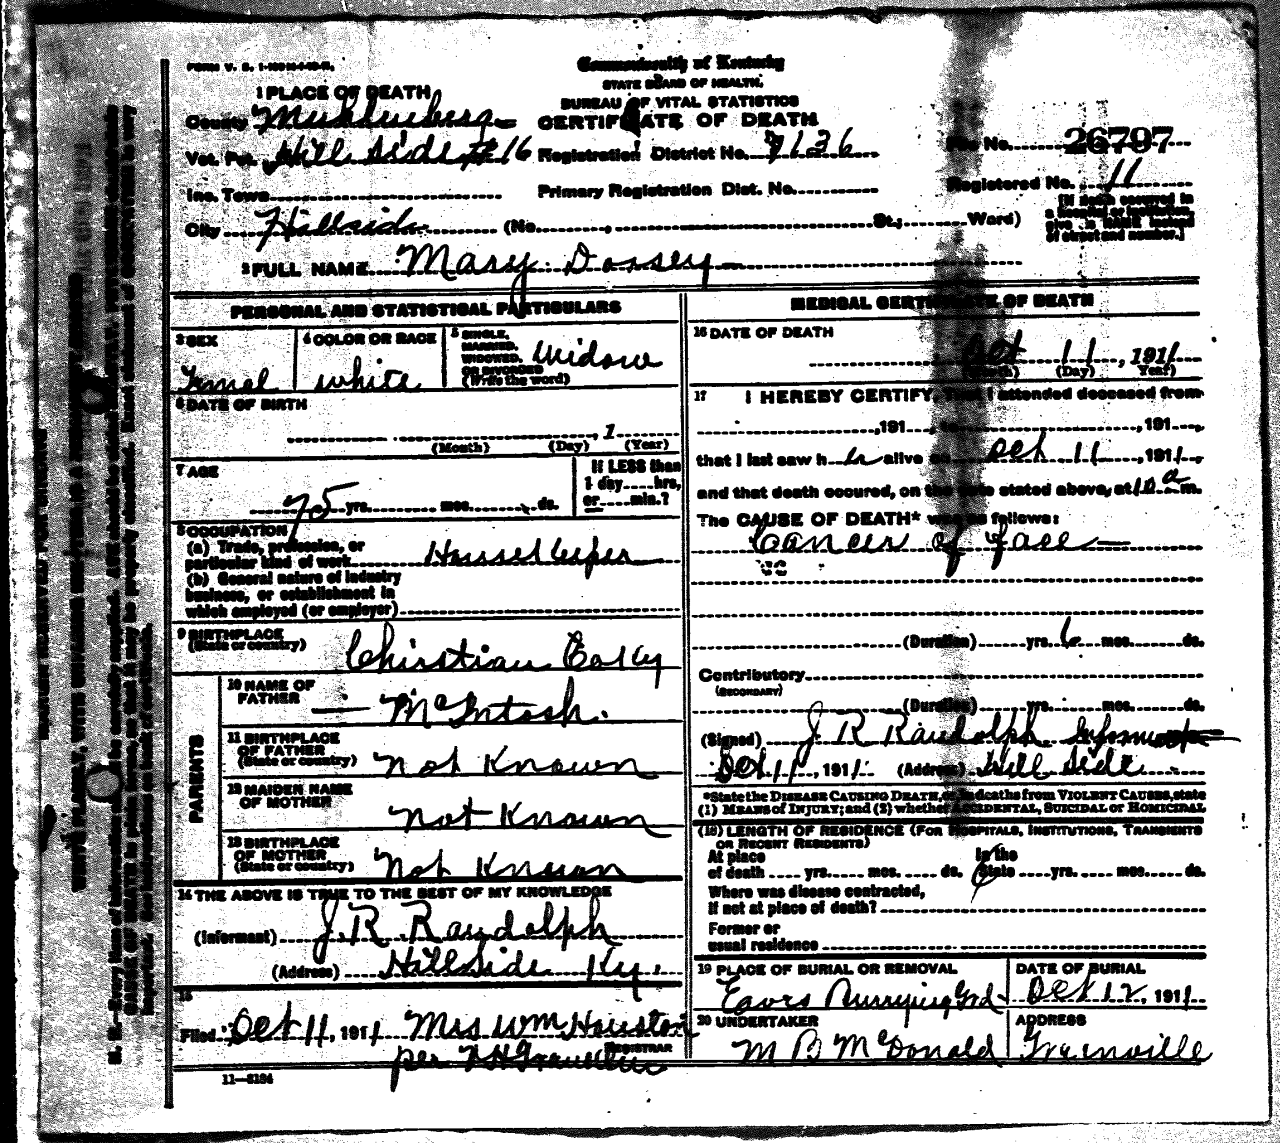 FORM V. S.
Commonwealth of Kentucky
STATE BOARD OF HEALTH.
BUREAU OF VITAL STATISTICS
CERTIFICATE OF DEATH
1 PLACE OF DEATH
County Muhlenberg
Vot. Pct. Hill Side #16 Registration District No. 7136
File No. 26797
Inc. Town Primary Registration Dist. No.
Registered No. 11
City Hillside (No. , St.; Ward)
[If death occurred in a hospital or institution, give its NAME instead of street and number.]
2 FULL NAME Mary Dossey
PERSONAL AND STATISTICAL PARTICULARS
3 SEX Femal
4 COLOR OR RACE white
5 SINGLE, MARRIED, WIDOWED, OR DIVORCED (Write the word) Widow
6 DATE OF BIRTH
, 1
(Month) (Day) (Year)
7 AGE
75 yrs. mos. ds.
If LESS than 1 day hrs. or min.?
8 OCCUPATION
(a) Trade, profession, or particular kind of work Housekeeper
(b) General nature of industry business, or establishment in which employed (or employer)
9 BIRTHPLACE (State or country) Christian Co Ky
PARENTS
10 NAME OF FATHER McIntosh.
11 BIRTHPLACE OF FATHER (State or country) Not Known
12 MAIDEN NAME OF MOTHER Not Known
13 BIRTHPLACE OF MOTHER (State or country) Not Known
14 THE ABOVE IS TRUE TO THE BEST OF MY KNOWLEDGE
(Informant) J. R. Randolph
(Address) HillSide Ky.
15
Filed Oct 11, 1911 Mrs Wm Houston
REGISTRAR
per
11-3184
MEDICAL CERTIFICATE OF DEATH
16 DATE OF DEATH
Oct 11, 1911
(Month) (Day) (Year)
17 I HEREBY CERTIFY, That I attended deceased from
, 191 , to , 191 ,
that I last saw h er alive on Oct 11, 1911,
and that death occured, on the date stated above, at 10 a m.
The CAUSE OF DEATH* was as follows:
Cancer of face
(Duration) yrs. 6 mos. ds.
Contributory
(SECONDARY)
(Duration) yrs. mos. ds.
(Signed) J R Randolph Informant
Oct 11, 1911. (Address) Hill Side
*State the DISEASE CAUSING DEATH, or in deaths from VIOLENT CAUSES, state
(1) MEANS OF INJURY; and (2) whether ACCIDENTAL, SUICIDAL or HOMICIDAL
(18) LENGTH OF RESIDENCE (FOR HOSPITALS, INSTITUTIONS, TRANSIENTS
OR RECENT RESIDENTS)
At place of death yrs. mos. ds. In the State yrs. mos. ds.
Where was disease contracted,
if not at place of death?
Former or
usual residence
19 PLACE OF BURIAL OR REMOVAL
Eaves Burrying Grd
DATE OF BURIAL
Oct 12, 1911
20 UNDERTAKER
M B McDonald
ADDRESS
Greenville